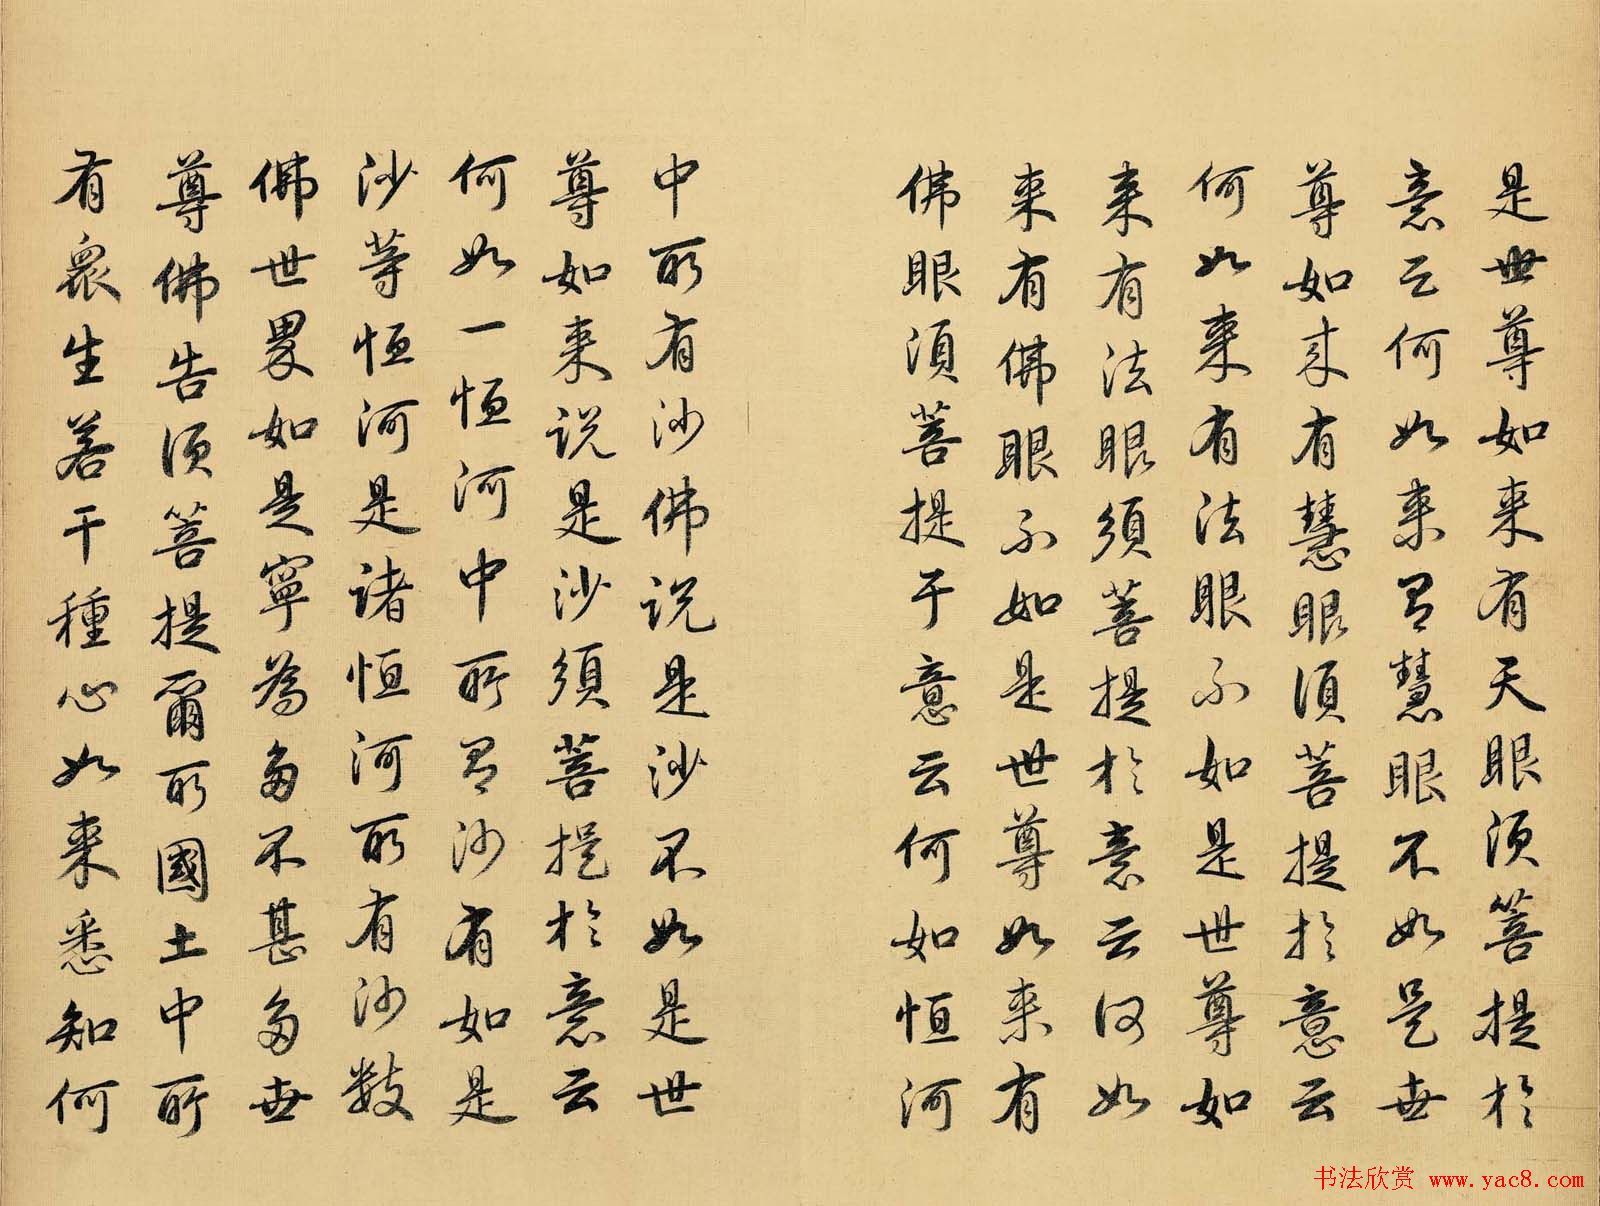 是世尊如来有天眼須菩提於
意云何如来有慧眼不如是世
尊如来有慧眼須菩提於意云
何如来有法眼不如是世尊如
来有法眼須菩提於意云何如
来有佛眼不如是世尊如来有
佛眼須菩提于意云何如恒河
中所有沙佛説是沙不如是世
尊如来説是沙須菩提於意云
何如一恒河中所有沙有如是
沙等恒河是諸恒河所有沙數
佛世界如是寧為多不甚多世
尊佛告須菩提爾所國土中所
有衆生若干種心如来悉知何
书法欣赏 www.yac8.com